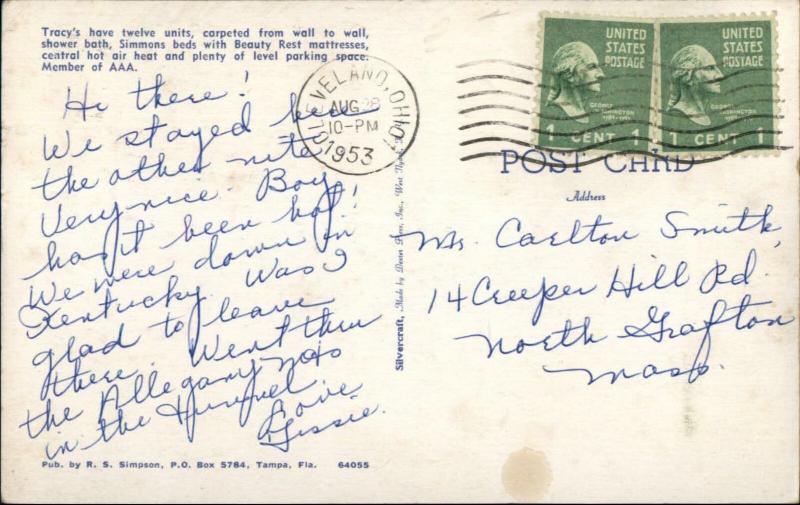 Tracy's have twelve units, carpeted from wall to wall,
shower bath, Simmons beds with Beauty Rest mattresses,
central hot air heat and plenty of level parking space.
Member of AAA.
Hi there!
We stayed here
the other nite
Very nice. Boy
hasn't been hot!
We were down in
Kentucky. Was I
glad to leave
there. Went thru
the Allegany Mts
in the Tunnel
Love
Jessie.
Pub. by R. S. Simpson, P.O. Box 5784, Tampa, Fla. 64055
CLEVELAND, OHIO
AUG 28
10-PM
1953
Silvercraft, Made by Dexter Press, Inc., West Nyack
UNITED
STATES
POSTAGE
GEORGE
WASHINGTON
1 CENT 1
UNITED
STATES
POSTAGE
GEORGE
WASHINGTON
1 CENT 1
POST CARD
Address
Mr. Carlton Smith
14 Creeper Hill Rd.
North Grafton
Mass.